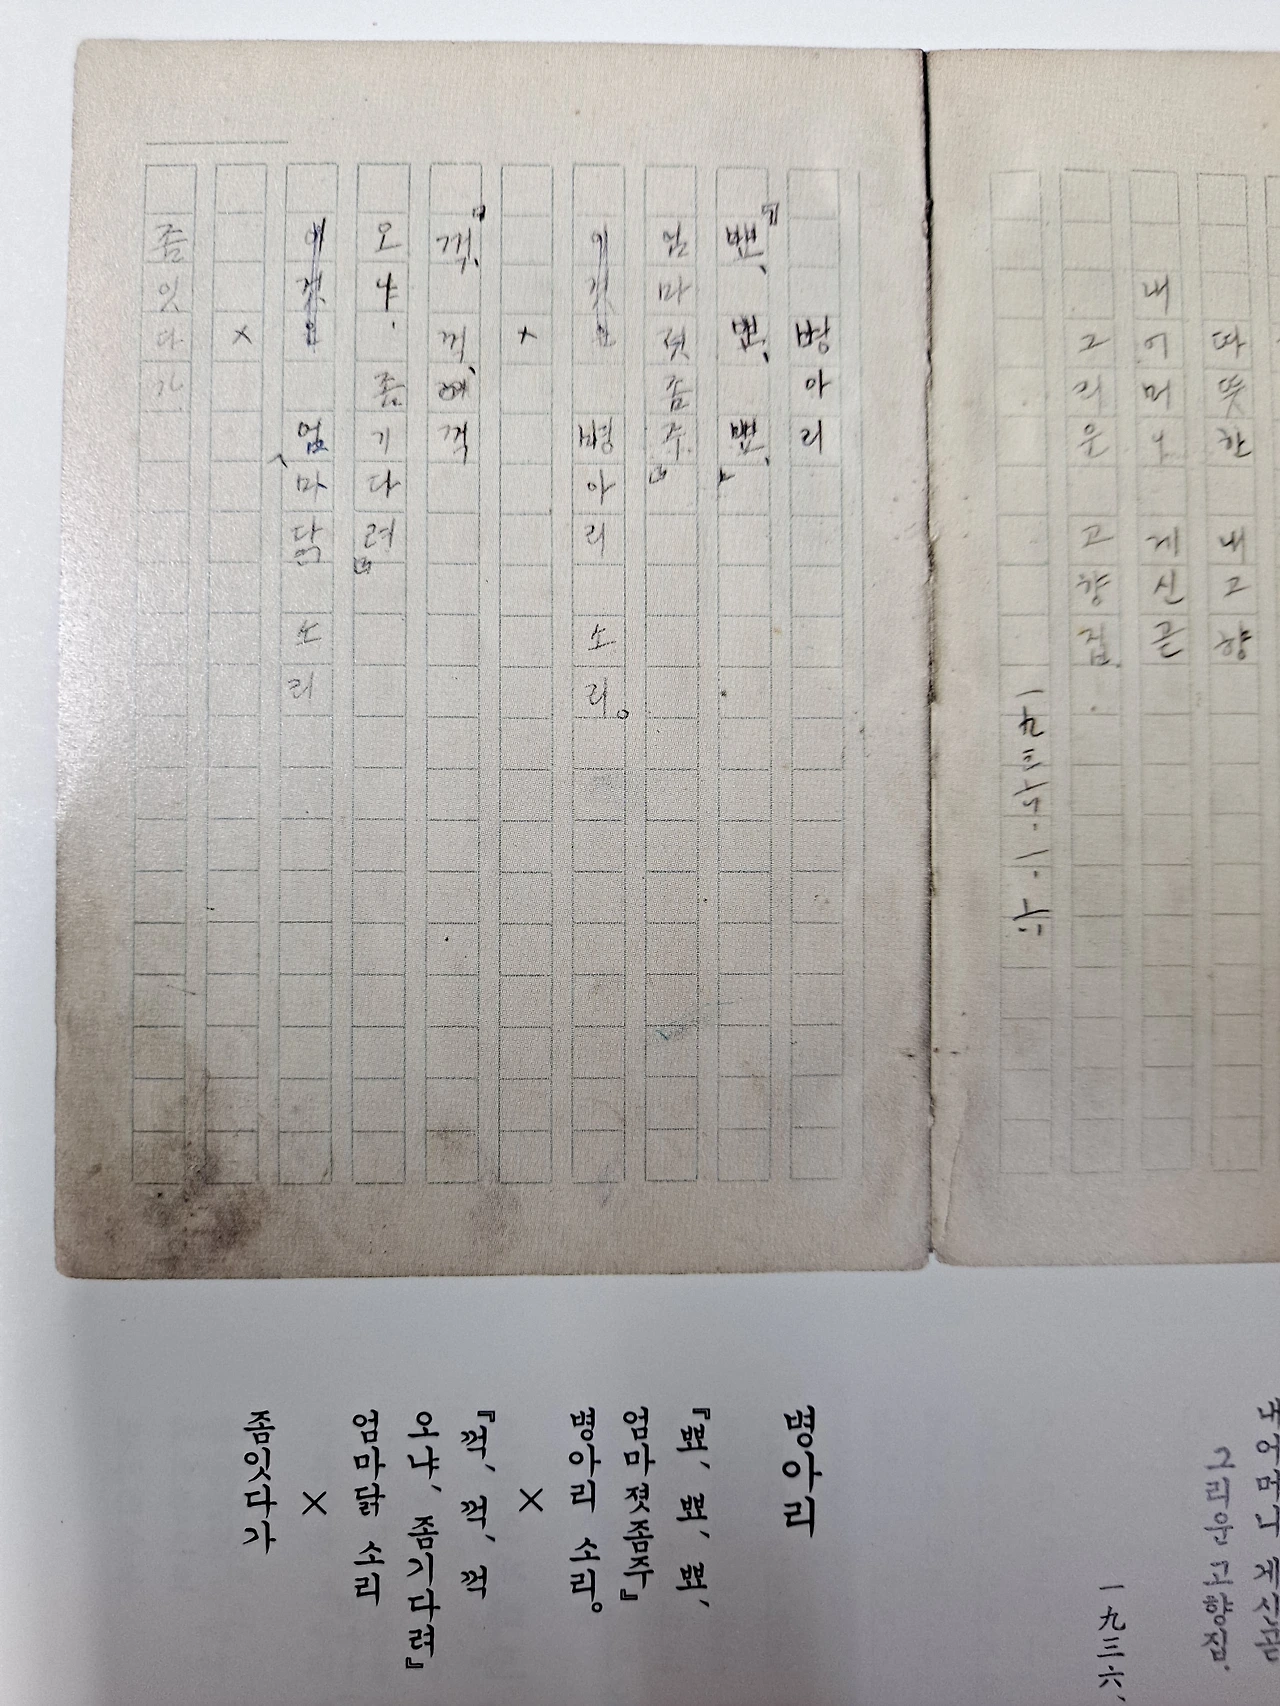 따뜻한 내고향
내어머니 계신곧
그리운 고향집.
一九三六·一·六
병아리
『뾰、뾰、뾰、
엄마젓좀주』
이것은 병아리 소리。
×
『꺽、꺽、꺽
오냐、좀기다려』
이것은 엄마닭 소리
×
좀잇다가
내어머니 계신곧
그리운 고향집.
一九三六、
병아리
『뾰、뾰、뾰、
엄마 젓좀주』
병아리 소리。
×
『꺽、꺽、꺽
오냐、좀기다려』
엄마닭 소리
×
좀잇다가